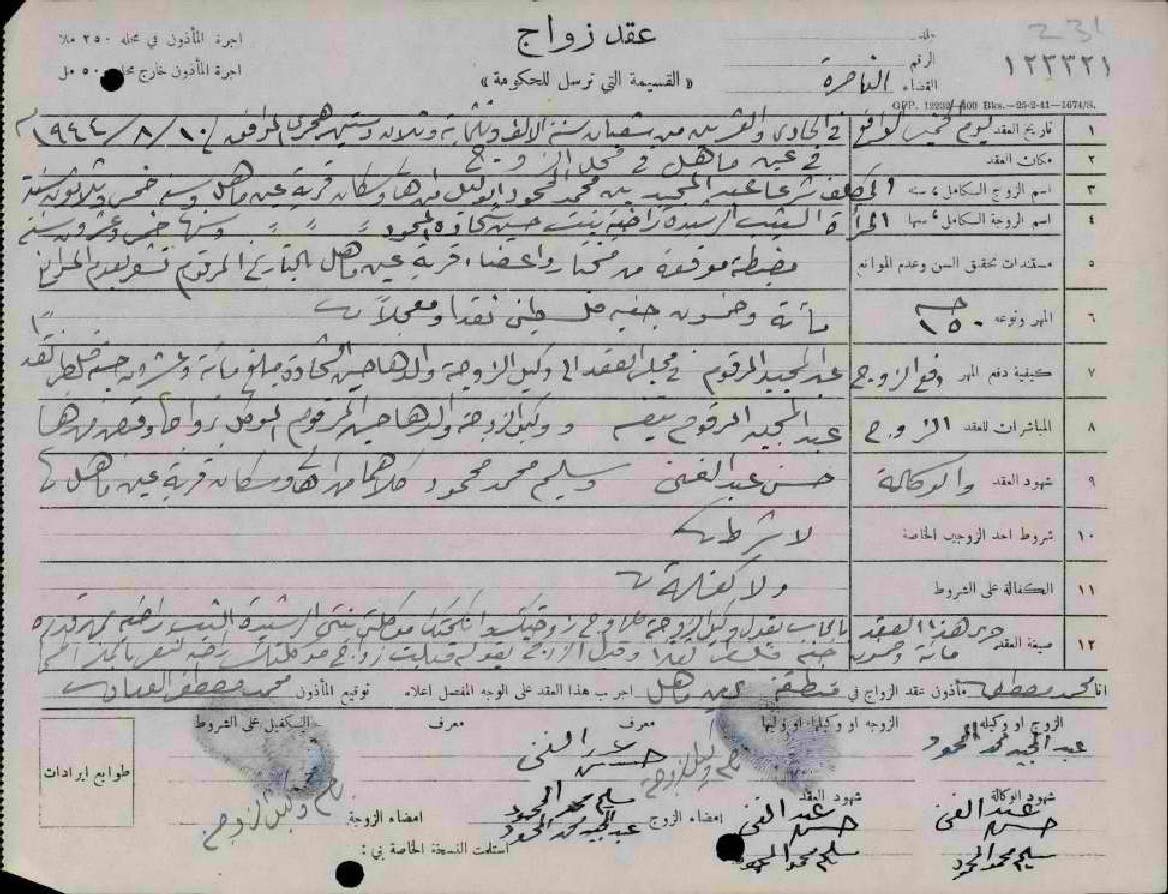 231
عقد زواج
اجرة المأذون في محله ٢٥٠ ملا
جلد
الرقم ١٢٣٣٢١
اجرة المأذون خارج محله ٥٠٠ مل
« القسيمة التي ترسل للحكومة »
القضاء الناصرة
G.P.P. 12232—400 Bks.—25-2-41—1674/S.
١ تاريخ العقد ليوم الخميس الواقع في الحادي والعشرين من شعبان سنة الالف وثلثماية وثلاث وستين هجري الموافق ١٠/٨/١٩٤٤ م
٢ مكان العقد في عين ماهل في محل الزوج
٣ اسم الزوج الكامل ، سنه المكلف شرعا عبد المجيد بن محمد المحمود من اهالي وسكان قرية عين ماهل وسنه خمس وثلاثون سنة
٤ اسم الزوجة الكامل ، سنها المرأة الثيب الرشيدة راضية بنت حسين شحادة المحمود وسنها خمس وعشرون سنة
٥ مستندات تحقق السن وعدم الموانع مضبطة موقعة من مختار واعضاء قرية عين ماهل بالتاريخ المرقوم تشعر بعدم الموانع
٦ المهر ونوعه ١٥٠ جنيه مأية وخمسون جنيه فلسطيني نقدا ومعجلا
٧ كيفية دفع المهر دفع الزوج عبد المجيد المرقوم في مجلس العقد الى وكيل الزوجة والدها حسين الشحادة مبلغ مأية وعشرون جنيه فلسطيني نقد
٨ المباشران للعقد الزوج عبد المجيد المرقوم بنفسه ووكيل الزوجة والدها حسين المرقوم الموكل بزواجها وقبض مهرها
٩ شهود العقد والوكالة حسن عبد الغني وسليم محمد محمود كلاهما من اهالي وسكان قرية عين ماهل
١٠ شروط احد الزوجين الخاصة لا شرط
١١ الكفالة على الشروط ولا كفالة
١٢ صيغة العقد جرى هذا العقد بايجاب بقول وكيل الزوجة للزوج زوجتك وانكحتك موكلتي بنتي الرشيدة الثيب راضية بمهر قدره
مأية وخمسون جنيه فلسطيني نقدا وقبل الزوج بقوله قبلت زواج موكلتك راضية لنفسي
انا محمد مصطفى مأذون عقد الزواج في منطقة عين ماهل اجريت هذا العقد على الوجه المفصل اعلاه توقيع المأذون محمد مصطفى
الزوج او وكيله
الزوجه او وكيلها او وليها
معرف
معرف
الكفيل على الشروط
عبد المجيد محمد المحمود
حسن عبد الغني
ختم وكيل الزوجة
طوابع ايرادات
شهود الوكالة
شهود العقد
حسن عبد الغني
حسن عبد الغني
سليم محمد المحمود
امضاء الزوج
سليم محمد المحمود
عبد المجيد محمد المحمود
امضاء الزوجة
سليم محمد المحمود
استلمت النسخة الخاصة بي :